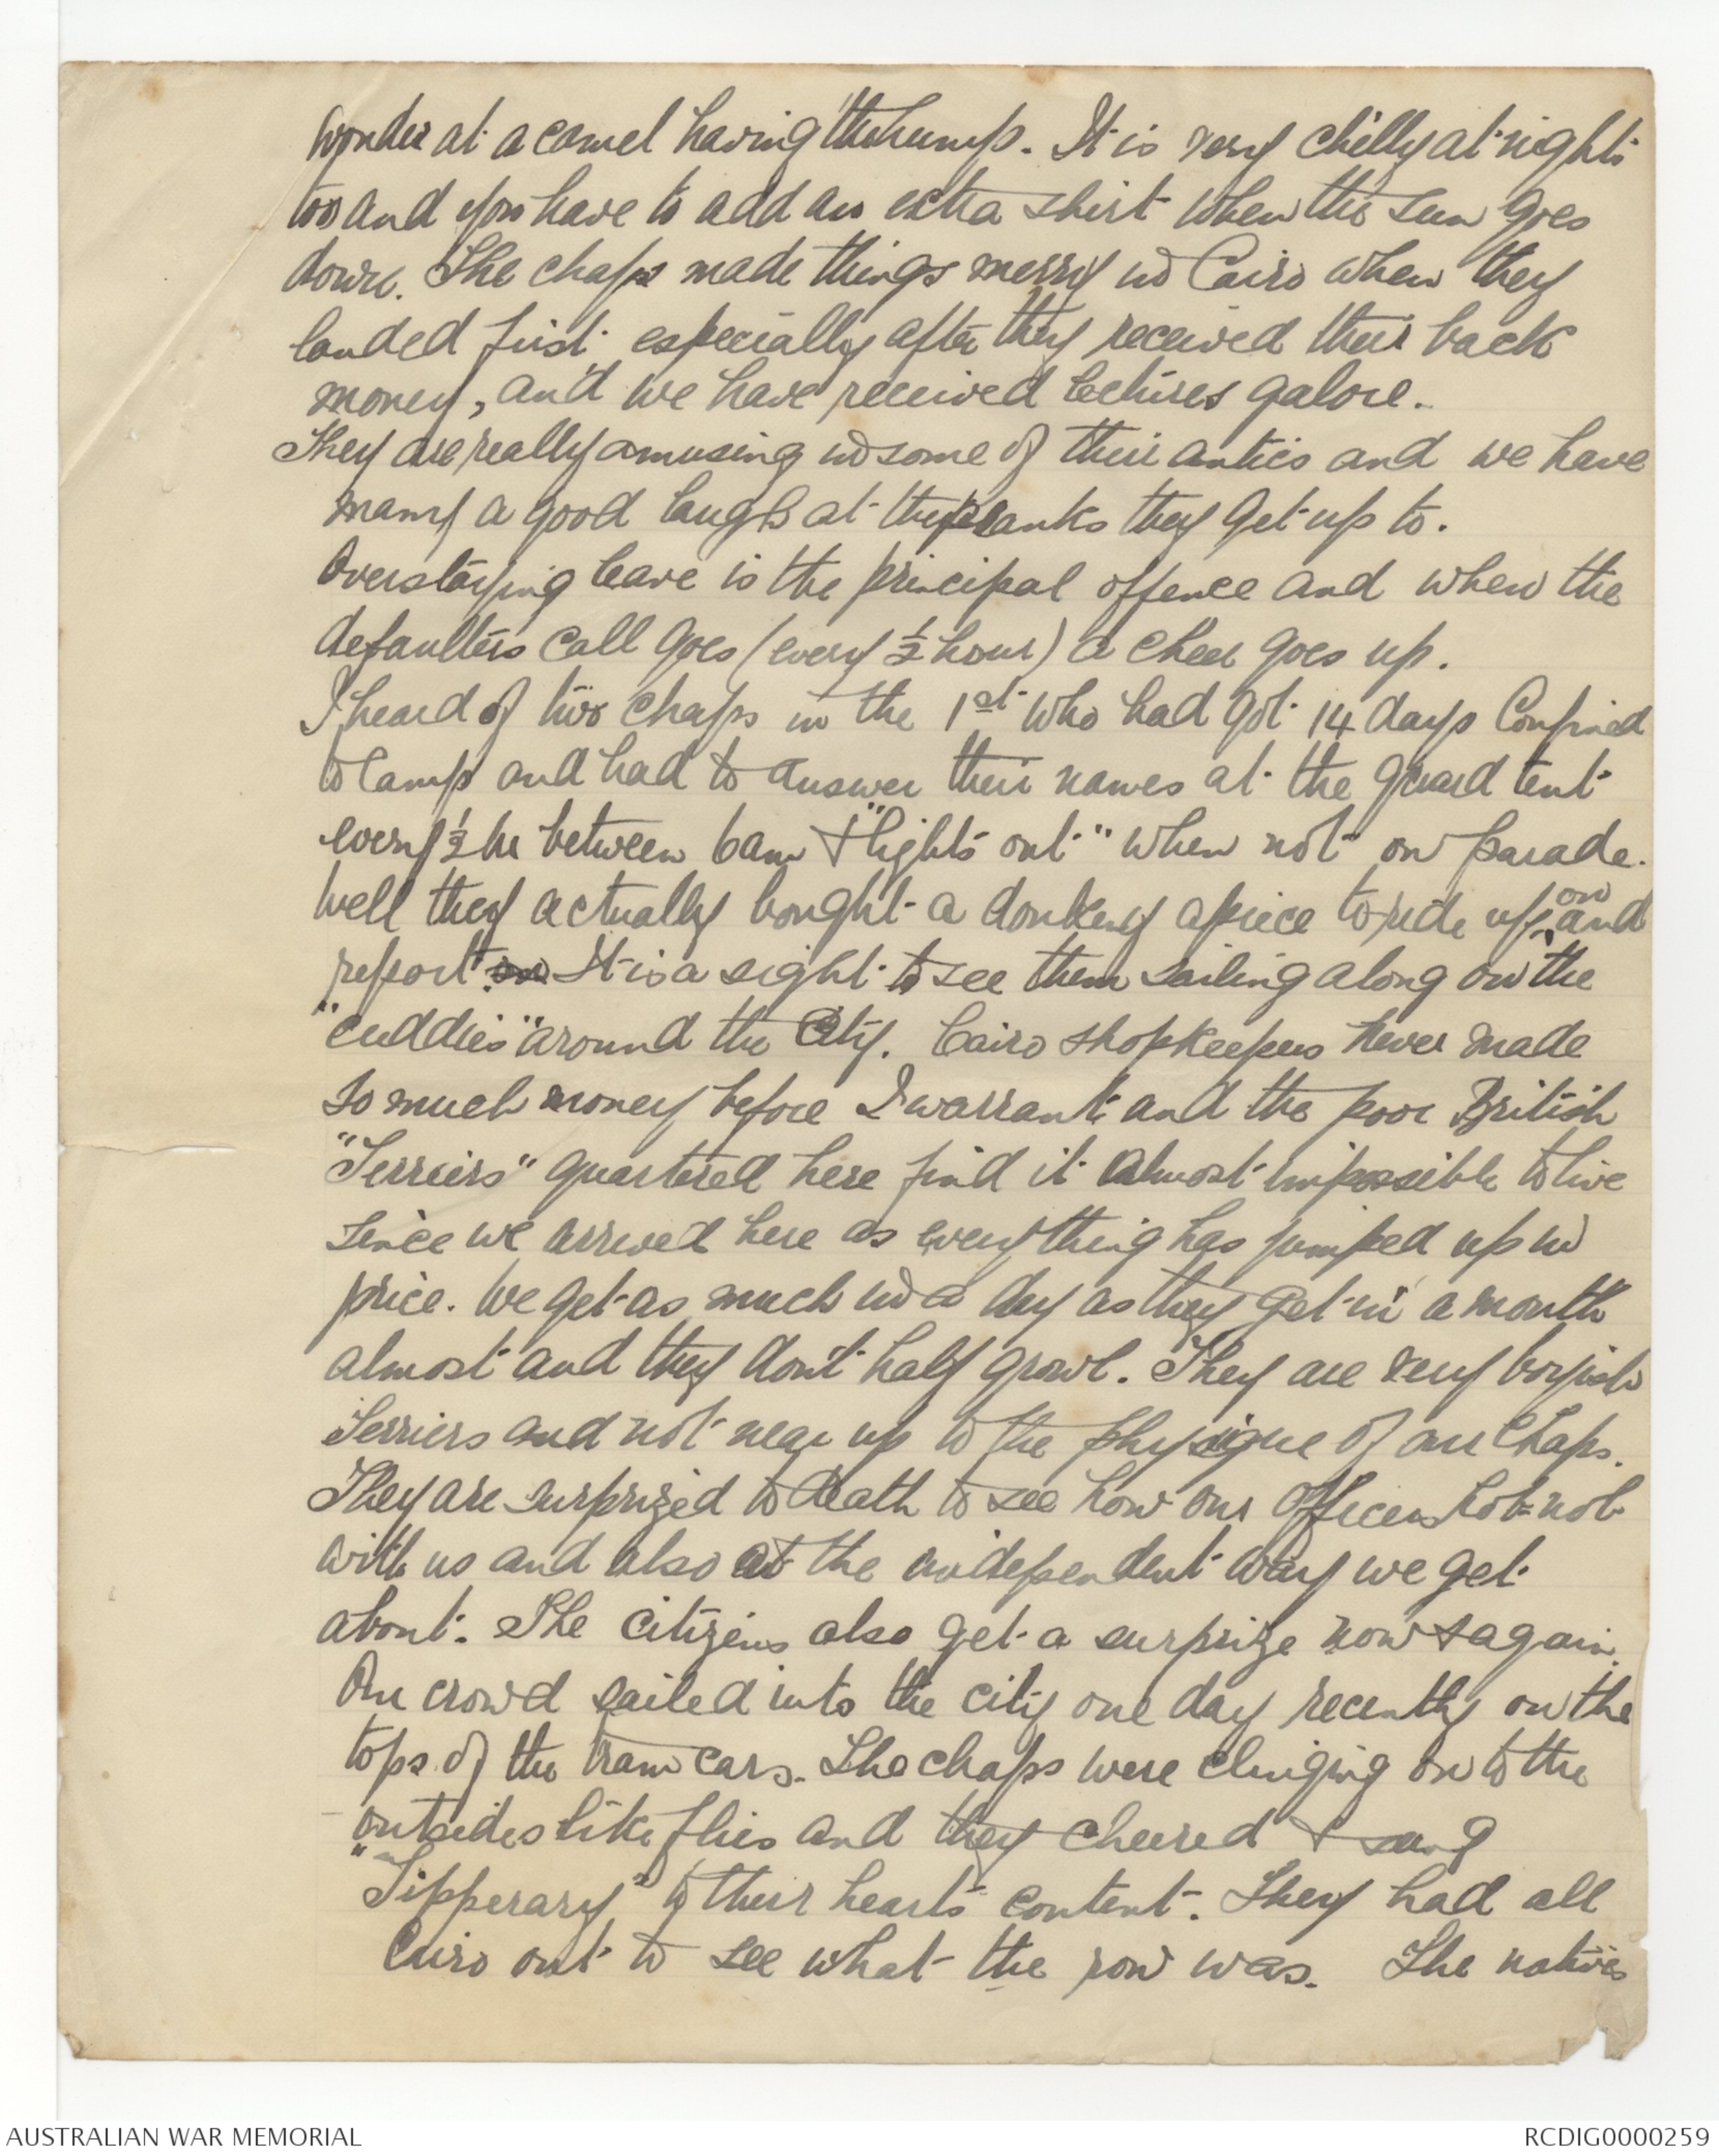 wonder at a camel having "the hump. It is very chilly at nights
too and you have to add an extra shirt when the sun goes
down. The chaps made things merry in Cairo when they
landed first especially after they received their back
money, and we have received lectures galore.
They are really amusing in some of their antics and we have
many a good laugh at the pranks they get up to.
Overstaying leave is the principal offence and when the
defaulters call goes (every ½ hour) a cheer goes up.
I heard of two chaps in the 1st who had got 14 days Confined
to Camp and had to answer their names at the guard tent
every ½ hr between 6am & "lights out" when not on parade.
Well they actually bought a donkey apiece to ride up on and
report. on It is a sight to see them sailing along on the
"cuddies" around the City. Cairo shopkeepers never made
so much money before I warrant and the poor British
"Terriers" quartered here find it almost impossible to live
since we arrived here as everything has jumped up in
price. We get as much in a day as they get in a month
almost and they don't half growl. They are very boyish
Terriers and not near up to the physique of our Chaps.
They are surprized to death to see how our Officers hob-nob
with us and also at the independent way we get
about. The citizens also get a surprize now & again.
Our crowd sailed into the city one day recently on the
tops of the tram cars. The chaps were clinging on to the
outsides like flies and they cheered & sang
"Tipperary" to their hearts content. They had all
Cairo out to see what the row was. The natives
AUSTRALIAN WAR MEMORIAL
RCDIG0000259